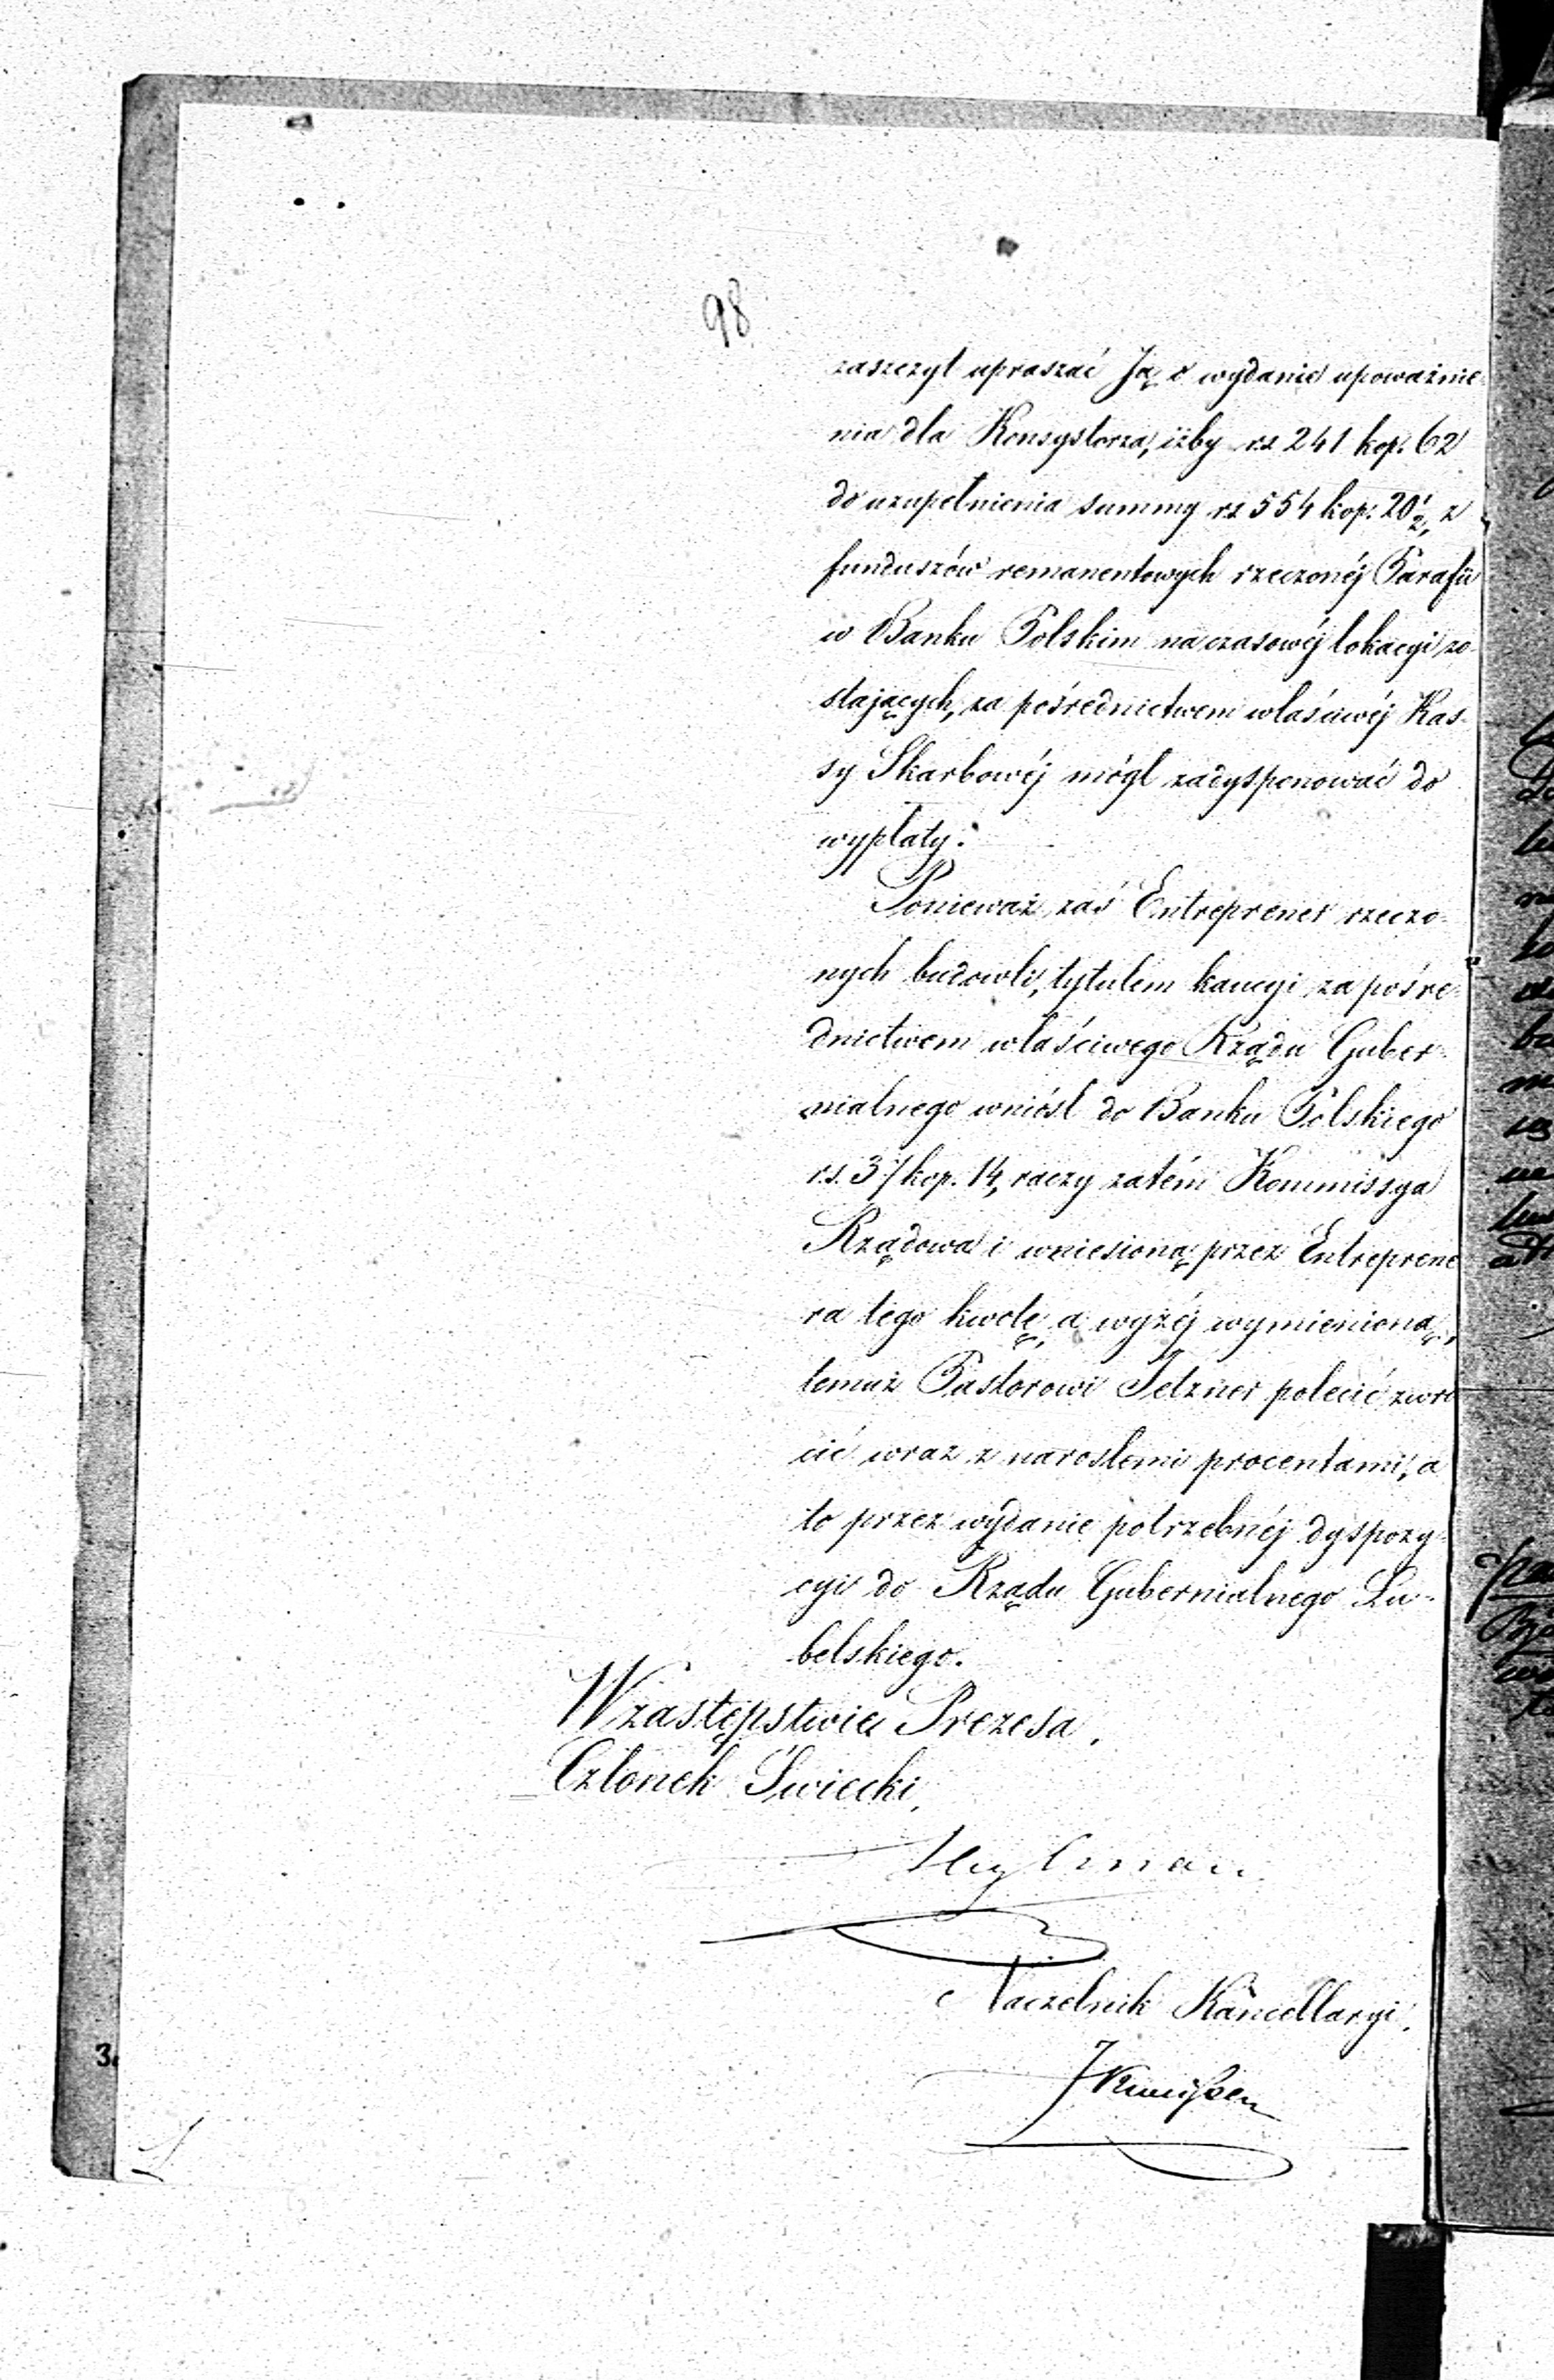 98
zaszczyt upraszać Ją o wydanie upoważnie-
nia dla Konsystorza, iżby rs 241 kop. 62
do uzupełnienia summy rs 554 kop. 20½, z
funduszów remanentowych rzeczonéj Parafii
w Banku Polskim na czasowéj lokacyi zo-
stających, za pośrednictwem właściwéj Kas-
sy Skarbowéj mógł zadysponować do
wypłaty.
Ponieważ zaś Entreprener rzeczo-
nych budowli, tytułem kaucyi za pośre-
dnictwem właściwego Rządu Guber-
nialnego wniósł do Banku Polskiego
rs. 37 kop. 14, raczy zatém Kommissya
Rządowa i wniesioną przez Entreprene
ra tego kwotę, a wyżéj wymienioną,
temuż Pastorowi polecić zwró
cić wraz z narosłemi procentami, a
to przez wydanie potrzebnéj dyspozy-
cyi do Rządu Gubernialnego Lu-
belskiego.
W zastępstwie Prezesa,
Członek Świecki,
Naczelnik Kancellaryi,